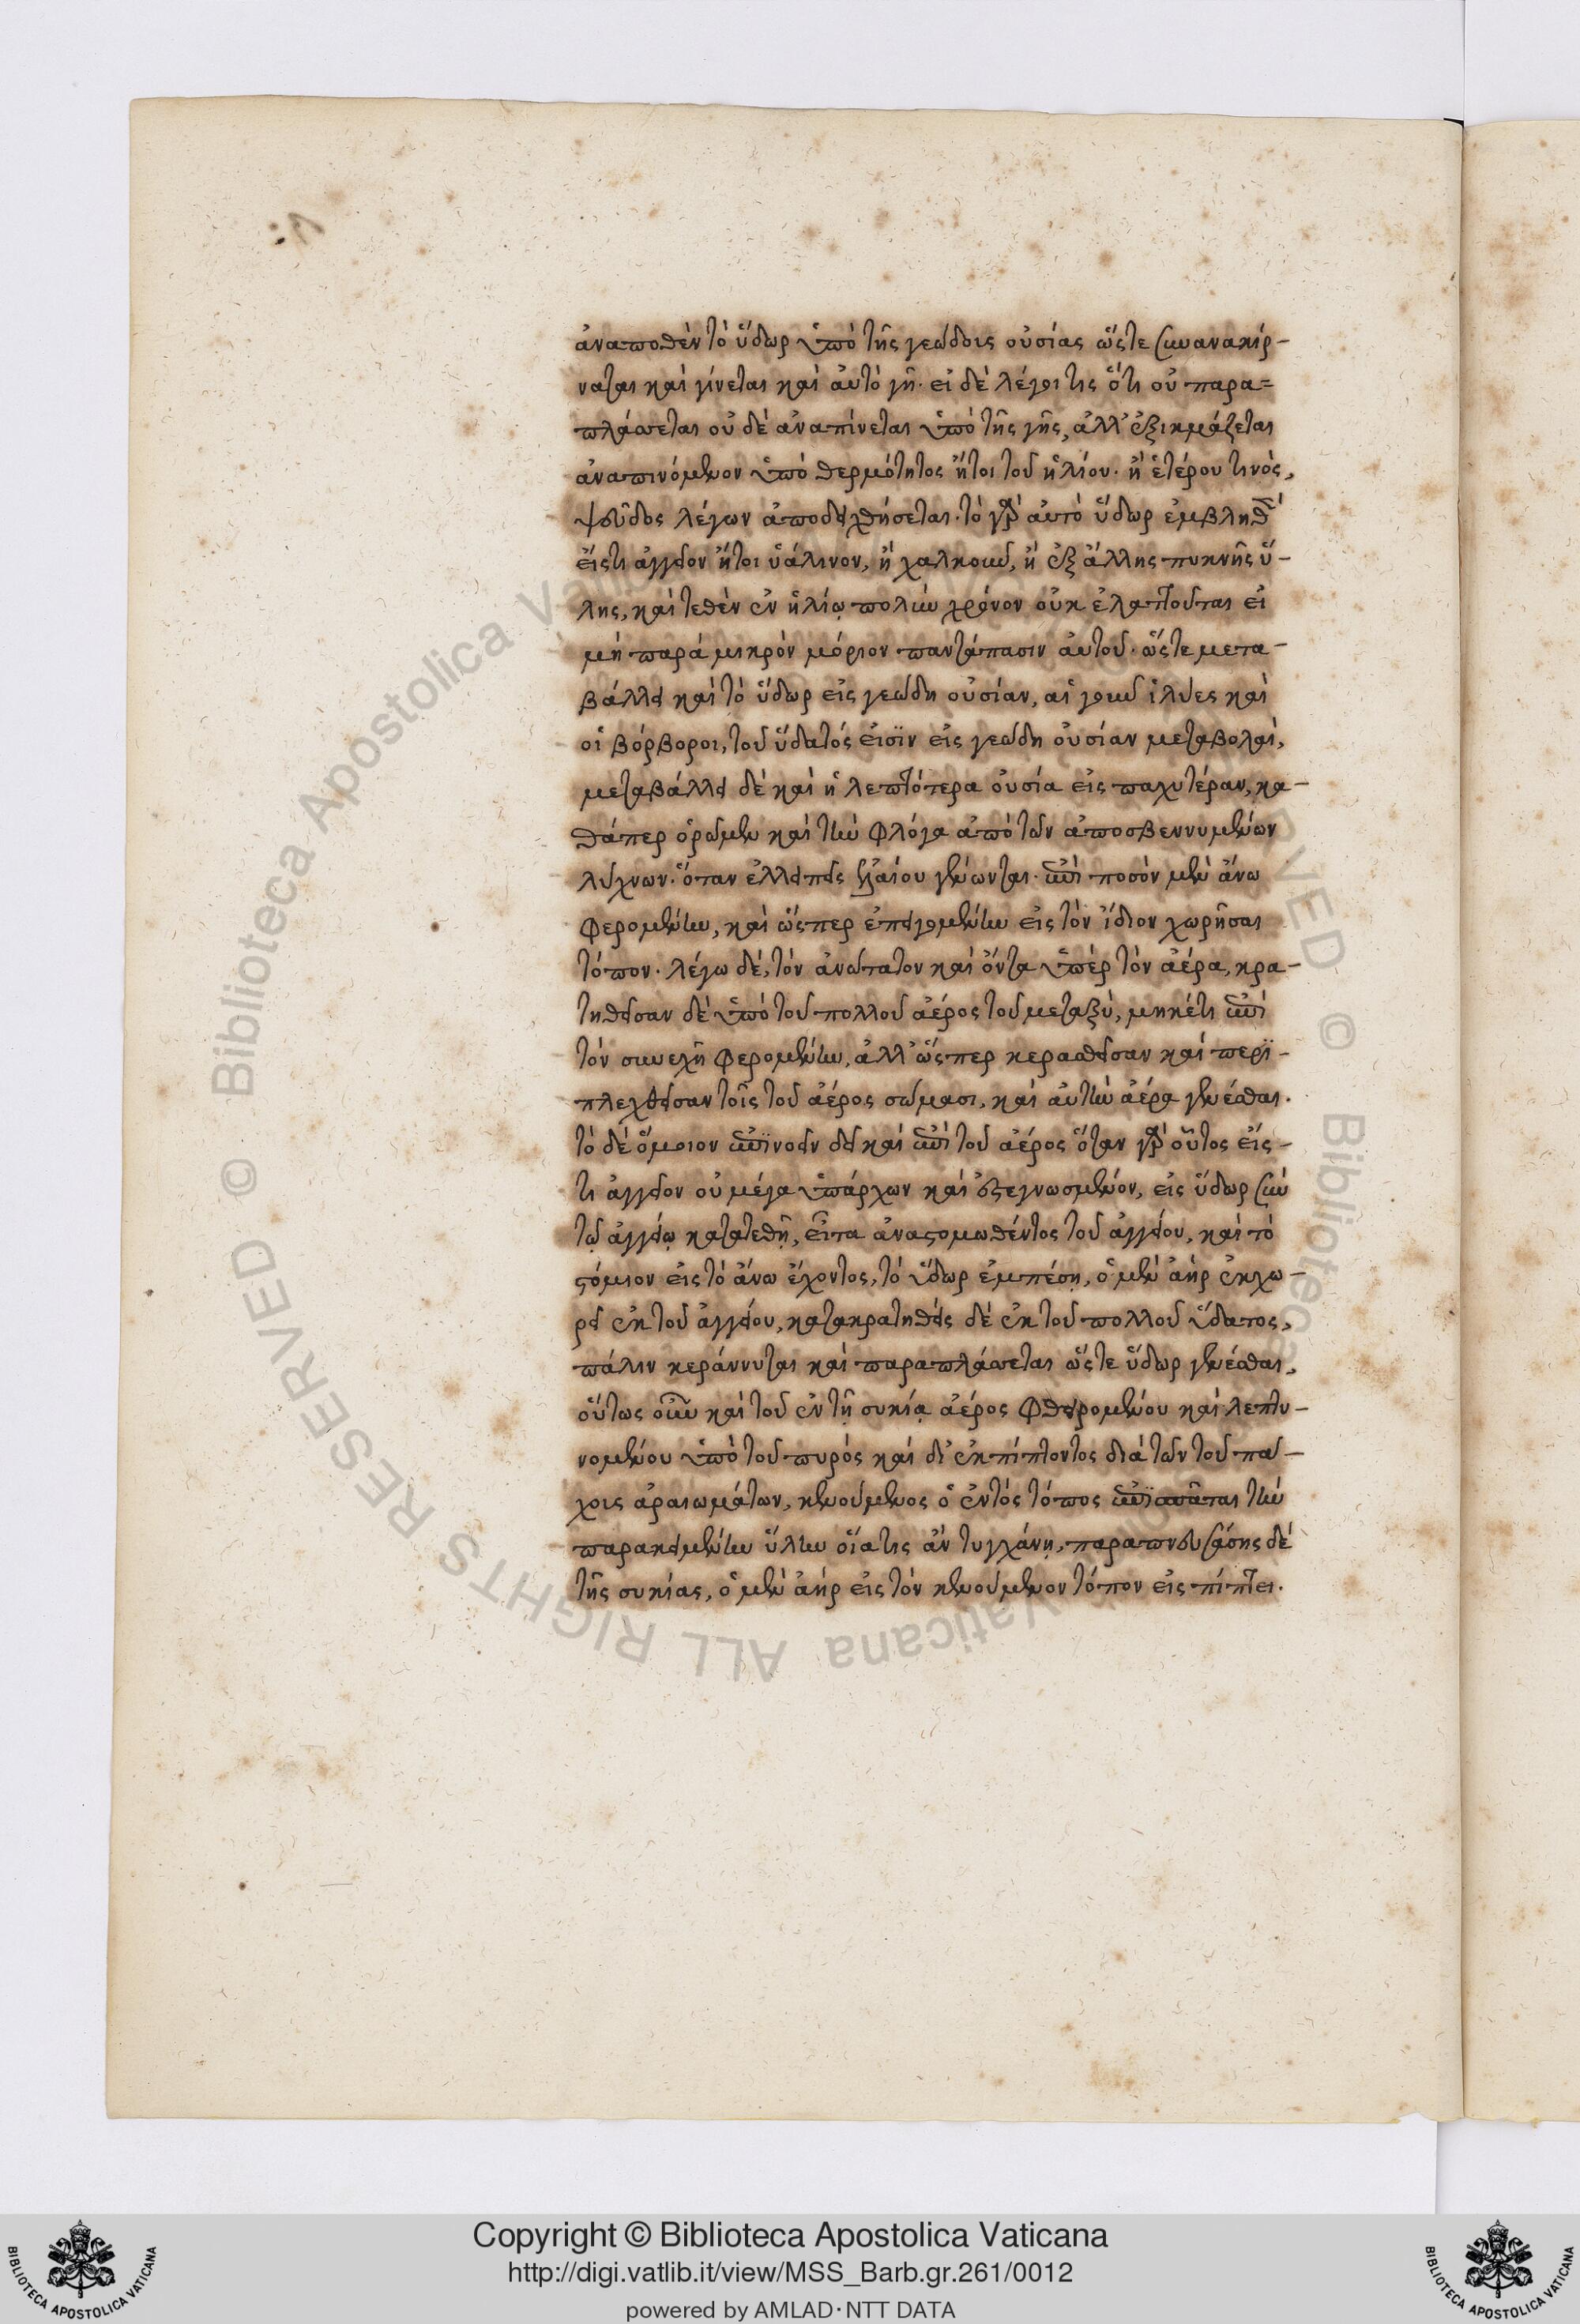 ἀναποθὲν τὸ ὕδωρ ὑπὸ τῆς γεώδους οὐσίας ὥστε συνανακίρ-
ναται καὶ γίνεται καὶ αὐτὸ γῆ. εἰ δὲ λέγοι τις ὅτι οὐ παρα=
πλάσσεται οὐ δὲ ἀναπίνεται ὑπὸ τῆς γῆς, ἀλλ' ἐξικμάζεται
ἀναπινόμενον ὑπὸ θερμότητος ἤτοι τοῦ ἡλίου. ἢ ἑτέρου τινὸς,
ψεῦδος λέγων ἀποδειχθήσεται. τὸ γὰρ αὐτὸ ὕδωρ ἐμβληθὲν
εἴς τι ἀγγεῖον ἤτοι ὑάλινον, ἢ χαλκοῦν, ἢ ἐξ ἄλλης πυκνῆς ὕ-
λης, καὶ τεθὲν ἐν ἡλίῳ πολὺν χρόνον οὐκ ἐλαττοῦται εἰ
μὴ παρὰ μικρὸν μόριον παντάπασιν αὐτοῦ. ὥστε μετα-
βάλλει καὶ τὸ ὕδωρ εἰς γεώδη οὐσίαν, αἱ γοῦν ἰλύες καὶ
οἱ βόρβοροι, τοῦ ὕδατός εἰσϊν εἰς γεώδη οὐσίαν μεταβολαὶ,
μεταβάλλει δὲ καὶ ἡ λεπτότερα οὐσία εἰς παχυτέραν, κα-
θάπερ ὁρῶμεν καὶ τὴν φλόγα ἀπὸ τῶν ἀποσβεννυμένων
λύχνων. ὅταν ἐλλειπεῖς ἐλαίου γένωνται. ἐπὶ ποσὸν μὲν ἄνω
φερομένην, καὶ ὥσπερ ἐπειγομένην εἰς τὸν ἴδιον χωρῆσαι
τόπον. λέγω δὲ, τὸν ἀνώτατον καὶ ὄντα ὑπὲρ τὸν ἀέρα, κρα-
τηθεῖσαν δὲ ὑπὸ τοῦ πολλοῦ ἀέρος τοῦ μεταξὺ, μηκέτι ἐπὶ
τὸν συνεχῆ φερομένην, ἀλλ' ὥσπερ κερασθεῖσαν καὶ περϊ-
πλεχθεῖσαν τοῖς τοῦ ἀέρος σώμασι, καὶ αὐτὴν ἀέρα γενέσθαι.
τὸ δὲ ὅμοιον ἐπϊνοεῖν δεῖ καὶ ἐπὶ τοῦ ἀέρος ὅταν γὰρ οὗτος εἴς-
τι ἀγγεῖον οὐ μέγα ὑπάρχων καὶ ἐστεγνωσμένον, εἰς ὕδωρ σὺν
τῷ ἀγγείῳ κατατεθῇ, εἶτα ἀναστομωθέντος τοῦ ἀγγείου, καὶ τὸ
στόμιον εἰς τὸ ἄνω ἔχοντος, τὸ ὕδωρ ἐμπέσῃ, ὁ μὲν ἀὴρ ἐκχω-
ρεῖ ἐκ τοῦ ἀγγείου, κατακρατηθεὶς δὲ ἐκ τοῦ πολλοῦ ὕδατος,
πάλιν κεράννυται καὶ παραπλάσσεται ὥστε ὕδωρ γενέσθαι,
οὕτως οὖν καὶ τοῦ ἐν τῇ συκίᾳ ἀέρος φθειρομένου καὶ λεπτυ-
νομένου ὑπὸ τοῦ πυρὸς καὶ δι' ἐκπίπτοντος διὰ τῶν τοῦ πα-
χοις ἀραιωμάτων, κενούμενος ὁ ἐντὸς τόπος ἐπϊσπᾶται τὴν
παρακειμένην ὕλην οἵα τις ἂν τυγχάνῃ, παραπνευσάσης δὲ
τῆς συκίας, ὁ μὲν ἀὴρ εἰς τὸν κενούμενον τόπον εἰς πίπτει.
Copyright © Biblioteca Apostolica Vaticana
http://digi.vatlib.it/view/MSS_Barb.gr.261/0012
powered by AMLAD·NTT DATA
BIBLIOTECA APOSTOLICA VATICANA
BIBLIOTECA APOSTOLICA VATICANA
© Biblioteca Apostolica Vaticana ALL RIGHTS RESERVED